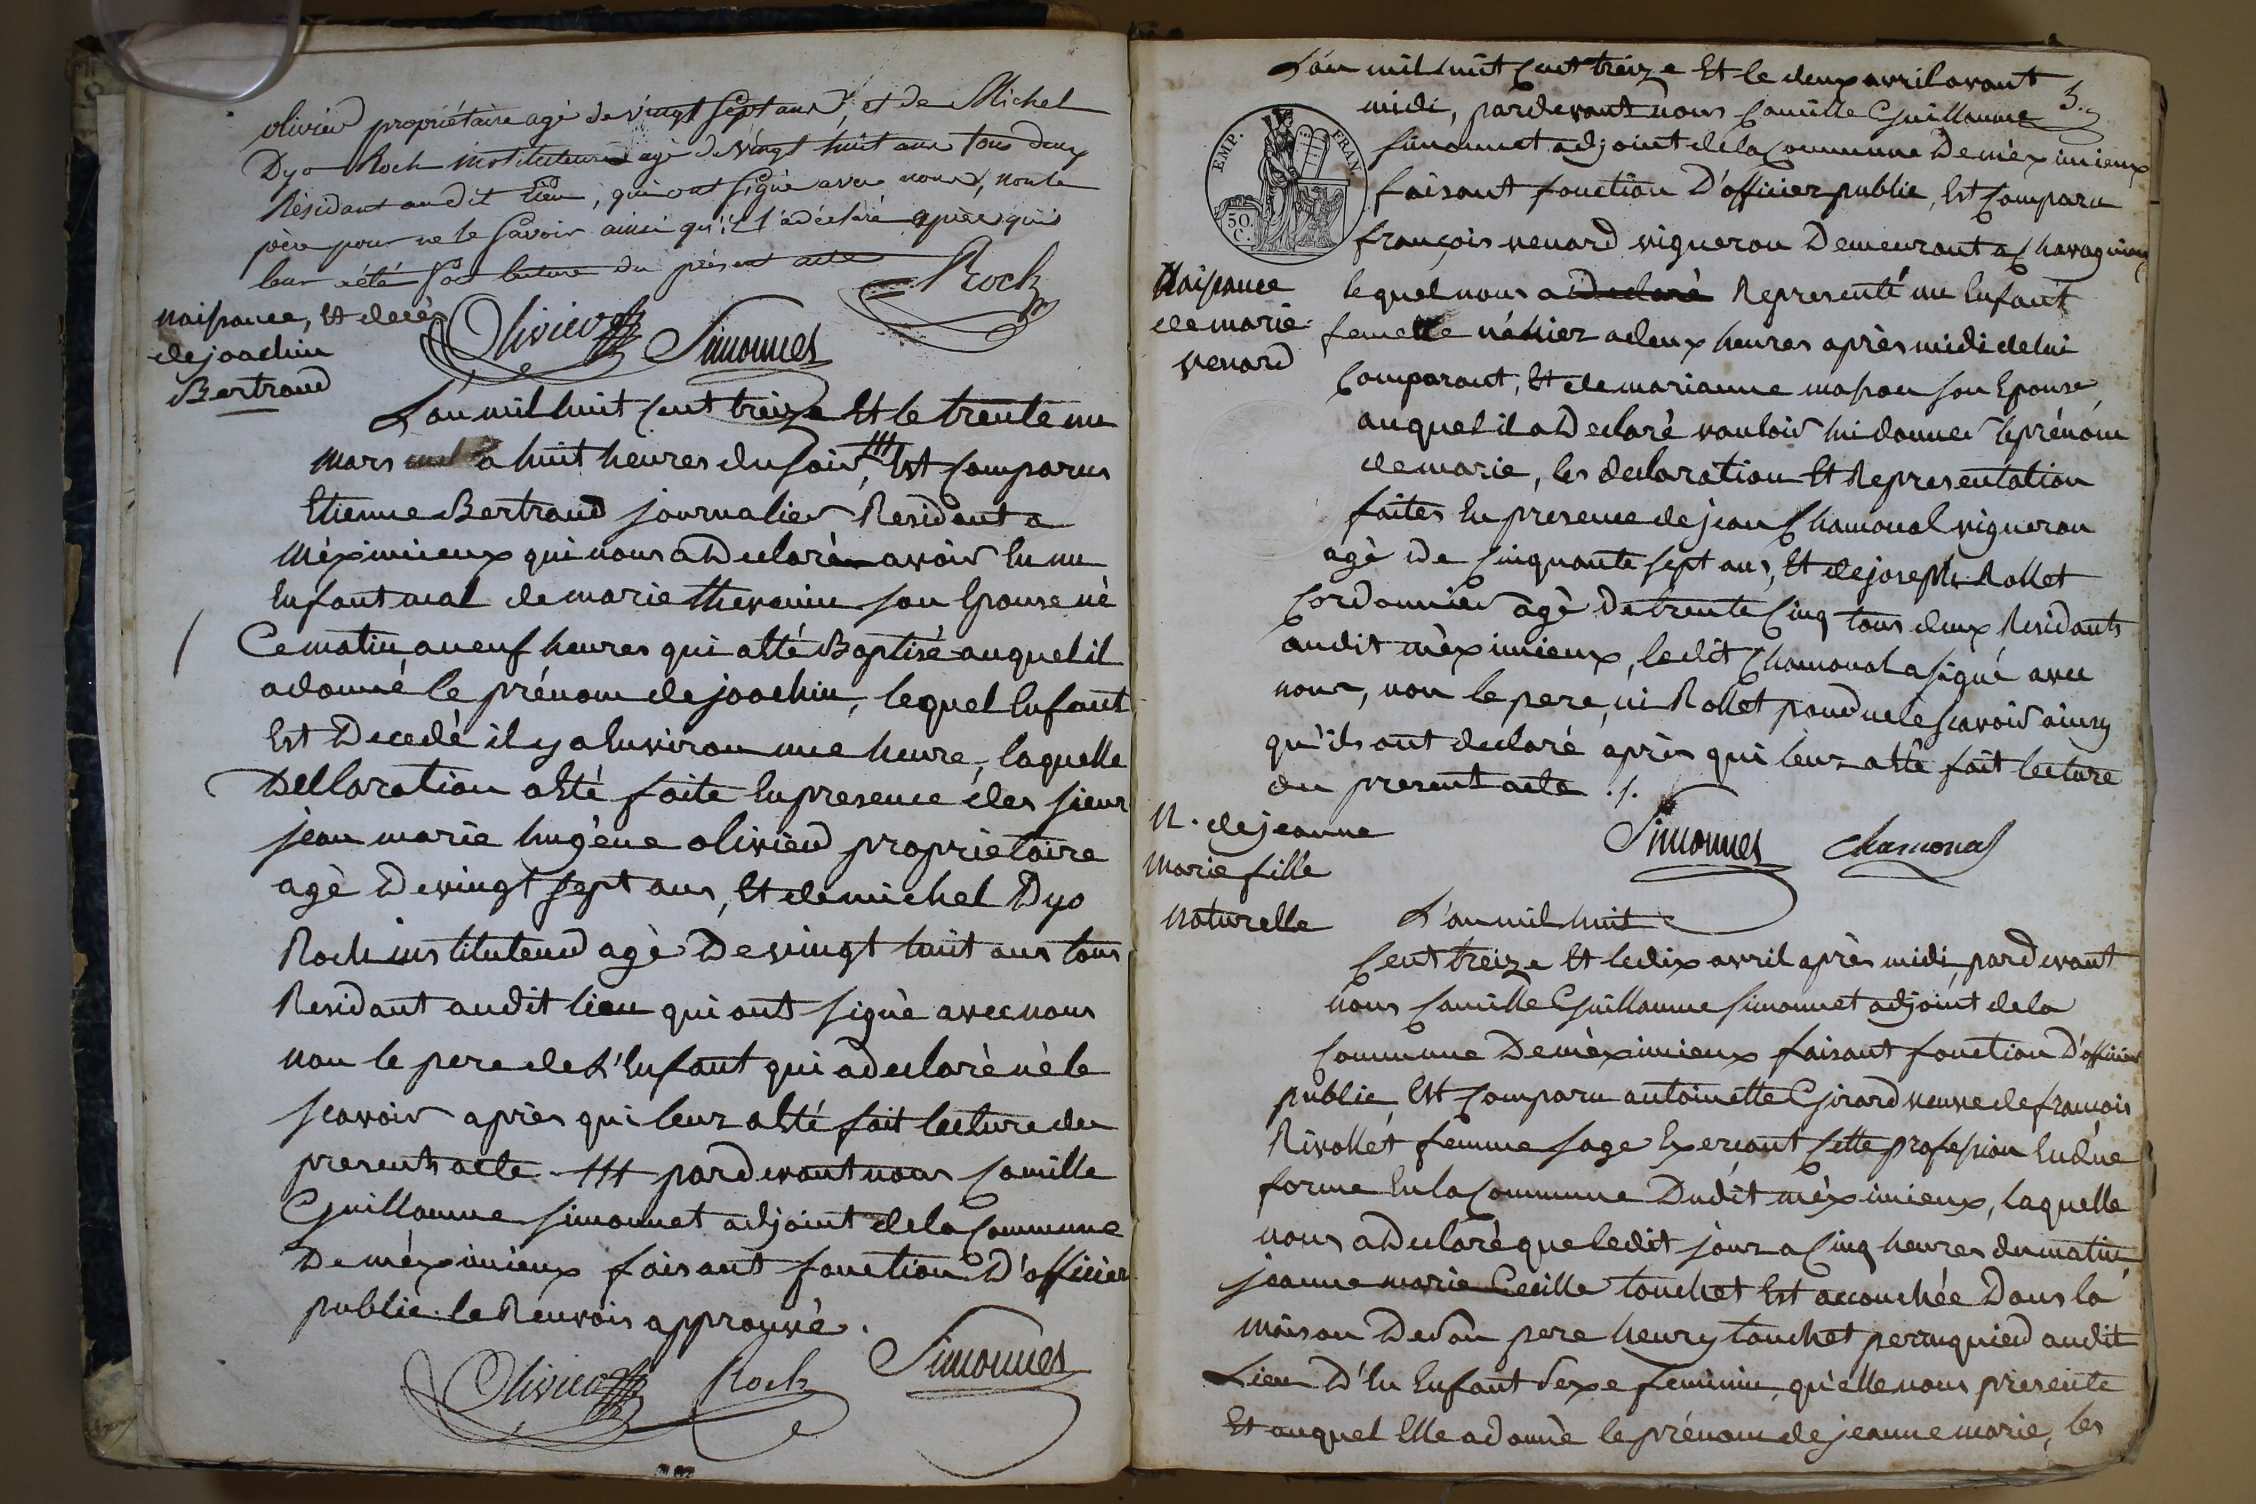 olivier propriétaire agé de vingt sept ans, et de Michel
Dyo Roch instituteur agé de vingt huit ans tous deux
Résidant audit lieu, qui ont signé avec nous, non le
père pour ne le savoir ainsi qu'il l'a déclaré après qui
leur a été fait lecture du présent acte
Roch
Olivier Simonnet
naissance, Et decès
de joachin
Bertrand
L'an mil huit Cent treize Et le trente un
mars a huit heures du soir, ttt Est Comparus
Etienne Bertrand journalier Residant a
méximieux qui nous a Declaré avoir Eu un
Enfant mal de marie thevenin son Epouse né
Ce matin a neuf heures qui a Eté Baptisé auquel il
a donné le prénom de joachin, lequel Enfant
Est Decedé il y a Environ une heure, laquelle
Declaration a Eté faite En presence des sieur
jean marie Eugéne olivier proprietaire
agé De vingt sept ans, Et de michel Dyo
Roch instituteur agé De vingt huit ans tous
Residant audit lieu qui ont signé avec nous
non le pere de L'Enfant qui a declaré né le
scavoir après qui leur a Eté fait lecture du
present acte ttt pardevant nous Camille
Guillaume simonnet adjoint de la Commune
De méximieux faisant fonction D'officier
public. le Renvoi approuvé.
Olivier Roch Simonnet
L'an mil huit Cent treize Et le deux avril avant
midi, pardevant nous Camille Guillaume 5.
simonnet adjoint de la Commune De méximieux
EMP. FRAN
50 C.
faisant fonction D'officier public, Est Comparu
françois venard vigneron Demeurant a Chavagnieux
naissance
de marie
venard
lequel nous a declaré Representé un Enfant
femelle né hier a deux heures après midi de lui
Comparant, Et de marianne masson son Epouse,
auquel il a Declaré vouloir lui donner le prénom
de marie, les declaration Et Representation
faites En presence de jean Chamonal vigneron
agé de Cinquante sept ans, Et de joseph Rollet
Cordonnier agé De trente Cinq tous deux Residants
audit méximieux, ledit Chamonal a signé avec
nous, non le pere, ni Rollet pour ne le scavoir ainsy
qu'ils ont declaré après qui leur a Eté fait lecture
du present acte ./.
Simonnet Chamonal
N. de jeanne
marie fille
naturelle
L'an mil huit
Cent treize Et le dix avril après midi, pardevant
nous Camille Guillaume simonnet adjoint de la
Commune De méximieux faisant fonction D'officier
public, Est Comparu antoinette Girard veuve de françois
Rivollet femme sage Exerçant Cette profession En düe
forme En la Commune Dudit méximieux, laquelle
nous a Declaré que ledit jour a Cinq heures du matin
jeanne marie Cecille touchet Est accouchée Dans la
maison De son pere henry touchet peruquier audit
Lieu D'Eu Enfant sexe feminin, qu'elle nous presente
Et auquel Elle a donné le prénom de jeanne marie, les